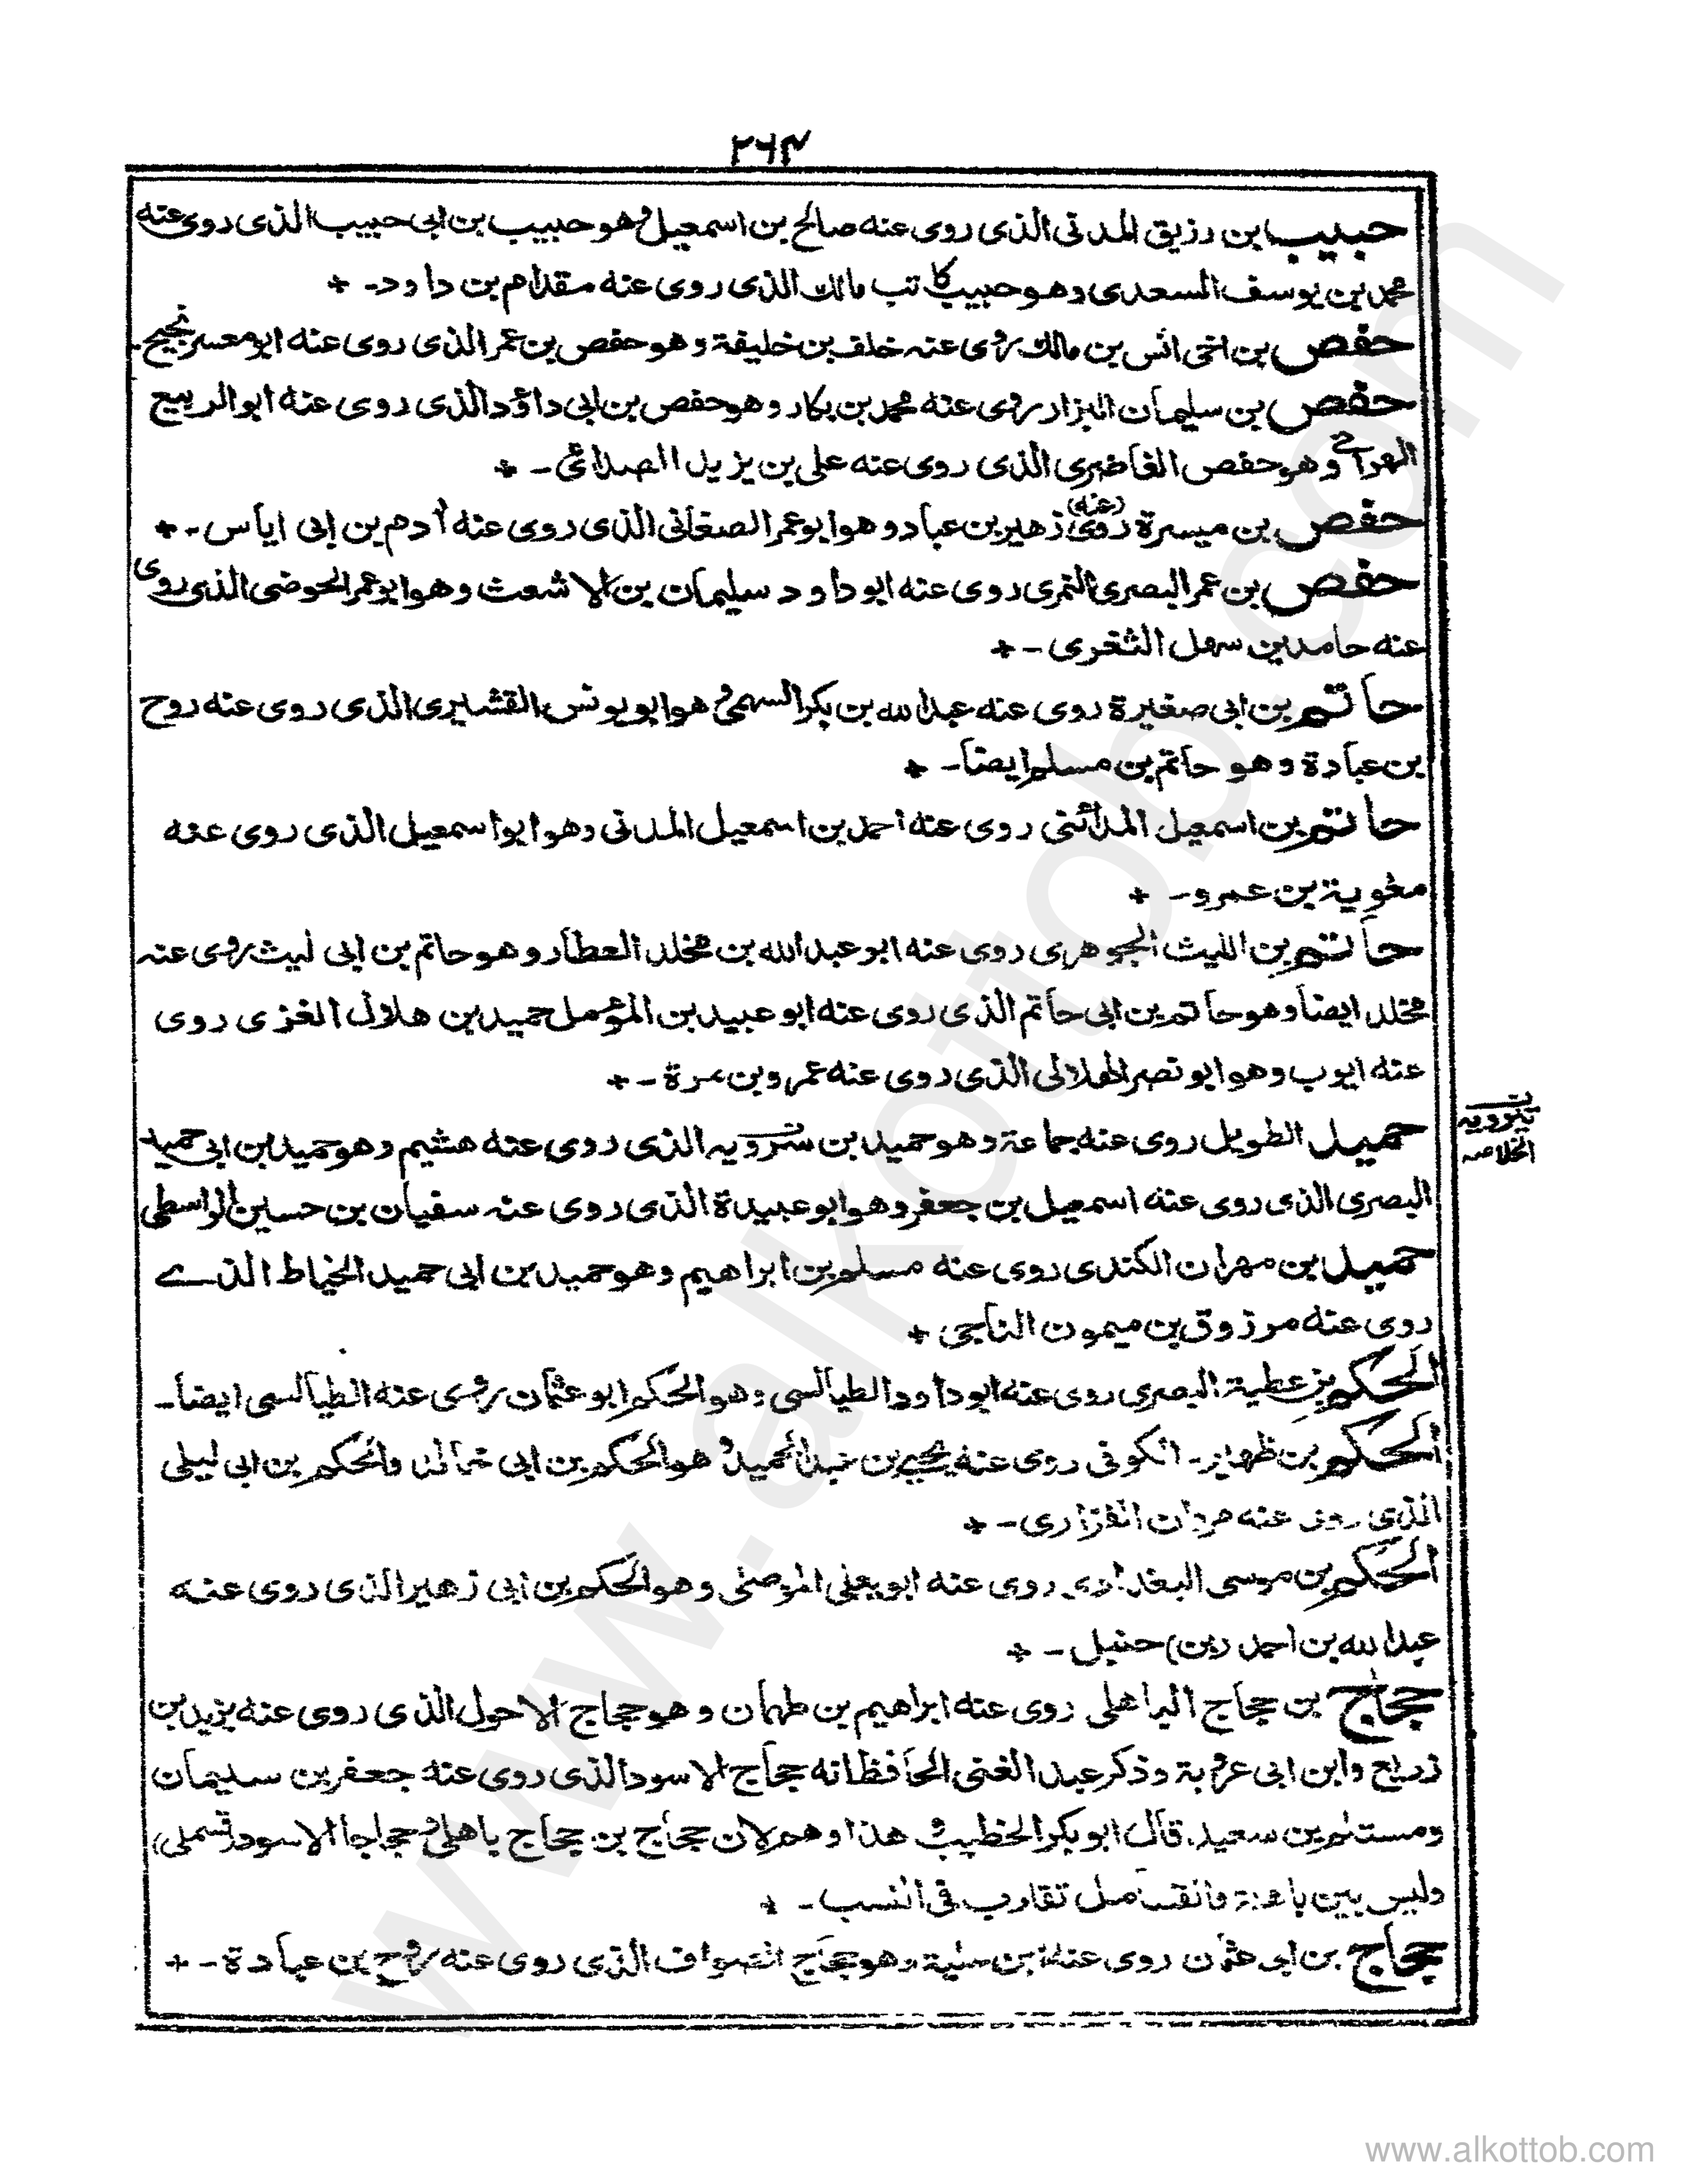 ٢٦٤
حبيب ابن رزيق المدنى الذى روى عنه صالح بن اسمعيل وهو حبيب بن ابى حبيب الذى روى عنه
محمد بن يوسف السعدى وهو حبيب كاتب مالك الذى روى عنه مقدام بن داود۔ +
حفص بن اخى انس بن مالك روى عنه خلف بن خليفة وهو حفص بن عمر الذى روى عنه ابو معسر نجيح۔
حفص بن سليمان البزار روى عنه محمد بن بكار وهو حفص بن ابى داؤد الذى روى عنه ابو الربيع
الهرا وهو حفص الغاضرى الذى روى عنه على بن يزيد الصدائى۔ +
حفص بن ميسرة روى (عنه) زهير بن عباد وهو ابو عمر الصغانى الذى روى عنه آدم بن ابى اياس۔ +
حفص بن عمر البصرى النمرى روى عنه ابو داود سليمان بن الاشعث وهو ابو عمر الحوضى الذى روى
عنه حامد بن سهل الثغرى۔ +
حاتم بن ابى صغيرة روى عنه عبد الله بن بكر السهمى وهو ابو يونس القشيرى الذى روى عنه روح
بن عبادة وهو حاتم بن مسلم ايضا۔ +
حاتم بن اسمعيل المدائنى روى عنه احمد بن اسمعيل المدنى وهو ابو اسمعيل الذى روى عنه
معوية بن عمرو۔ +
حاتم بن الليث الجوهرى روى عنه ابو عبد الله بن مخلد العطار وهو حاتم بن ابى ليث روى عنه
مخلد ايضا وهو حاتم بن ابى حاتم الذى روى عنه ابو عبيد بن المؤمل حميد بن هلال الغزى روى
عنه ايوب وهو ابو نصر الهلالى الذى روى عنه عمرو بن مرة۔ +
حميد الطويل روى عنه جماعة وهو حميد بن تيرويه الذى روى عنه هشيم وهو حميد بن ابى حميد
تيرويه
الخلاصه
البصرى الذى روى عنه اسمعيل بن جعفر وهو ابو عبيدة الذى روى عنه سفيان بن حسين الواسطى
حميد بن مهران الكندى روى عنه مسلم بن ابراهيم وهو حميد بن ابى حميد الخياط الذے
روى عنه مرزوق بن ميمون الناجى +
الحكم بن عطية البصرى روى عنه ابو داود الطيالسى وهو الحكم ابو عثمان روى عنه الطيالسى ايضا۔
الحكم بن ظهير۔ الكوفى روى عنه يحيے بن عبد الحميد وهو الحكم بن ابى خالد والحكم بن ابى ليلى
الذى روى عنه مروان الفزارى۔ +
الحكم بن موسى البغدادى روى عنه ابو يعلى الموصلى وهو الحكم بن ابى زهير الذى روى عنه
عبد الله بن احمد (بن) حنبل۔ +
حجاج بن حجاج الباهلى روى عنه ابراهيم بن طهمان وهو حجاج الاحول الذى روى عنه يزيد بن
زريع وابن ابى عروبة وذكر عبد الغنى الحافظ انه حجاج الاسود الذى روى عنه جعفر بن سليمان
ومستلم بن سعيد۔ قال ابو بكر الخطيب و هذا وهم لان حجاج بن حجاج باهلى وحجاجا الاسود (قسملى)
وليس بين باهلة والقسامل تقارب فى النسب۔ +
حجاج بن ابى عثمان روى عنه ابن علية وهو حجاج الصواف الذى روى عنه روح بن عبادة۔ +
www.alkottob.com
www.alkottob.com